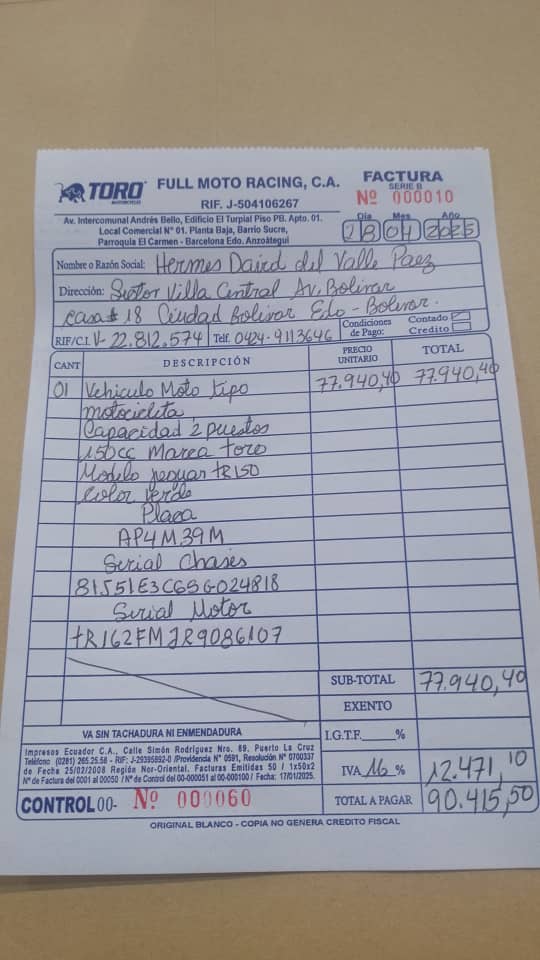 TORO
MOTORCYCLES
FULL MOTO RACING, C.A.
RIF. J-504106267
FACTURA
SERIE B
Nº 000010
Av. Intercomunal Andrés Bello, Edificio El Turpial Piso PB. Apto. 01.
Local Comercial N° 01. Planta Baja, Barrio Sucre,
Parroquia El Carmen - Barcelona Edo. Anzoátegui
Día Mes Año
28 04 2025
Nombre o Razón Social: Hermes Daird del Valle Paez
Dirección: Sector Villa Central Av. Bolivar
casa # 18 Ciudad Bolivar Edo - Bolivar.
RIF/C.I. V- 22.812.574 Telf. 0424-9113646 Condiciones de Pago: Contado Credito
CANT DESCRIPCIÓN PRECIO UNITARIO TOTAL
01 Vehiculo Moto tipo 77.940,40 77.940,40
motocicleta
Capacidad 2 puestos
150cc Marca toro
Modelo jaguar tR150
Color Verde
Placa
AP4M39M
Serial Chasis
81S51E3C6SG024818
Serial Motor
tR162FMJR9086107
SUB-TOTAL 77.940,40
EXENTO
VA SIN TACHADURA NI ENMENDADURA
I.G.T.F.____%
Impresos Ecuador C.A., Calle Simón Rodríguez Nro. 89, Puerto La Cruz
Teléfono (0281) 265.25.58 - RIF: J-29395892-0 /Providencia N° 0591, Resolución N° 0700337
de Fecha 25/02/2008 Región Nor-Oriental. Facturas Emitidas 50 / 1x50x2
N° de Factura del 0001 al 00050 / N° de Control del 00-000051 al 00-000100 / Fecha: 17/01/2025.
IVA 16 % 12.471,10
CONTROL 00- Nº 000060
TOTAL A PAGAR 90.415,50
ORIGINAL BLANCO - COPIA NO GENERA CREDITO FISCAL